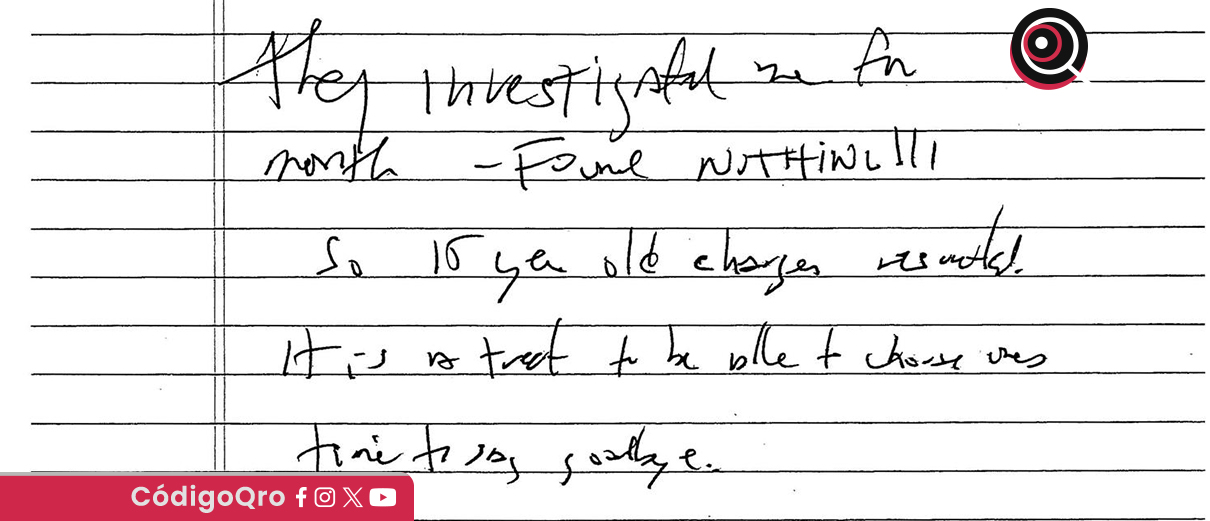 They investigated me for
month - Found NOTHING!!!
So 15 year old charges resulted.
It is a treat to be able to choose ones
time to say goodbye.
CódigoQro